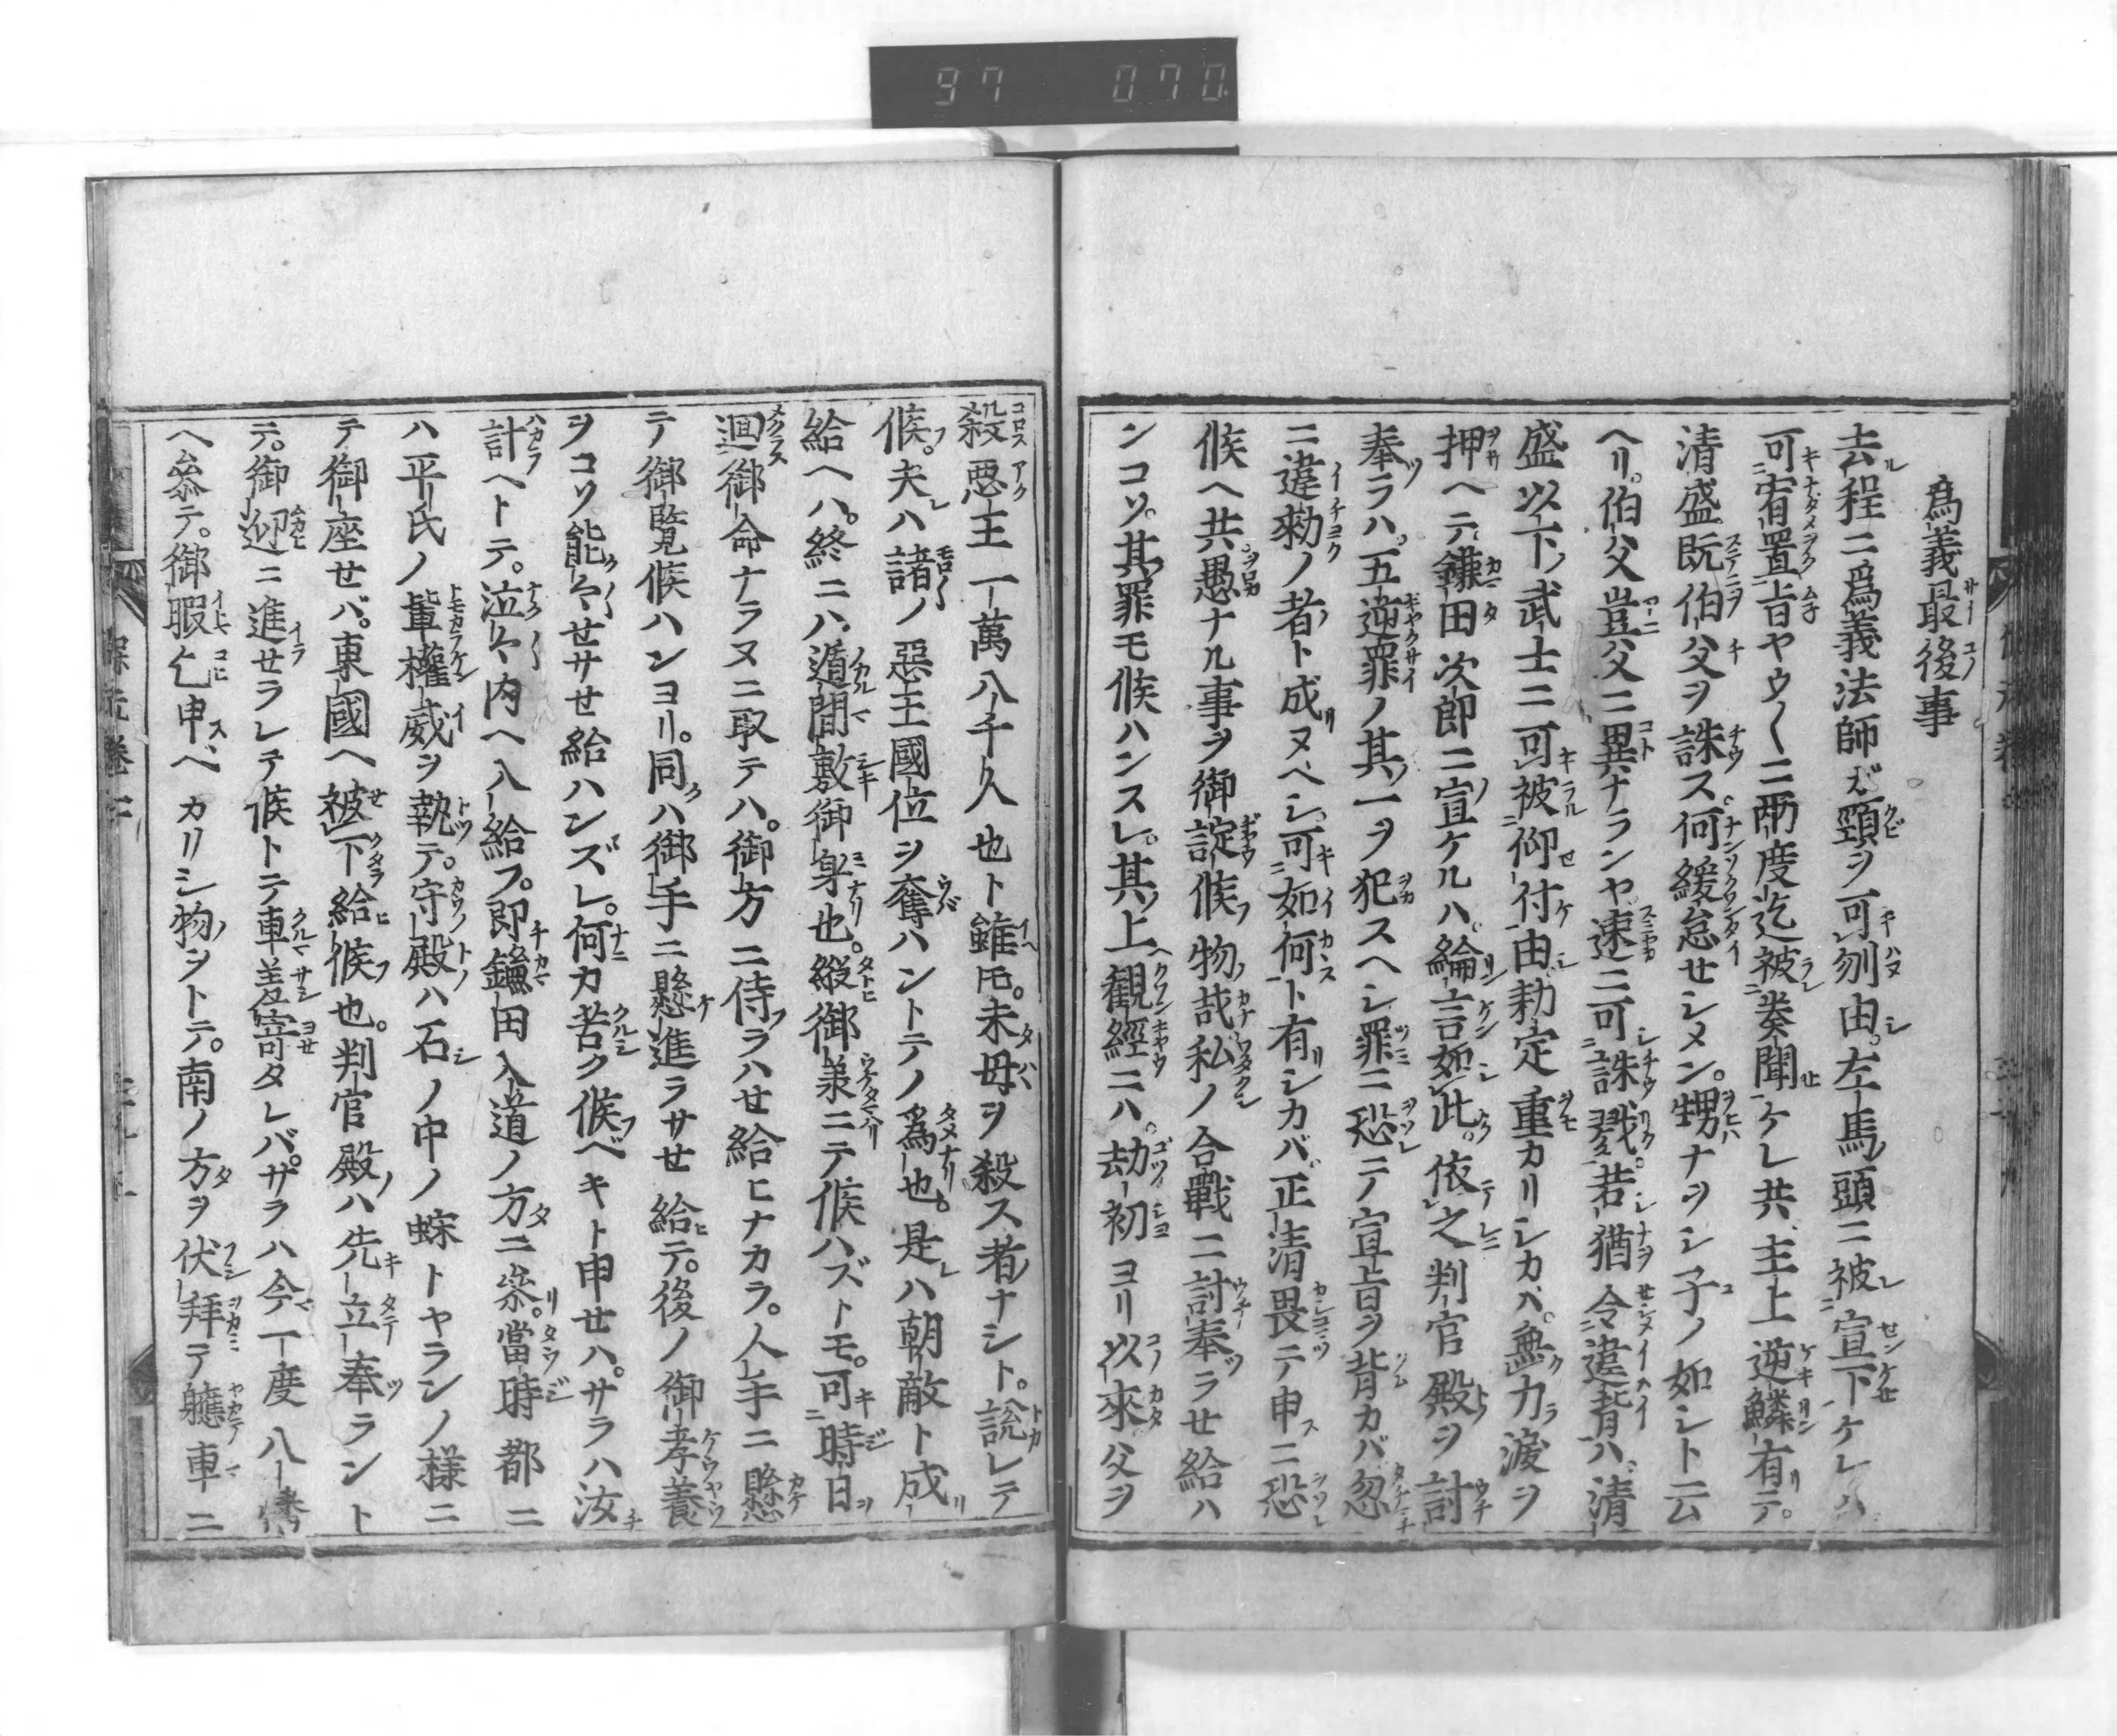 97 070
爲義最後事
去程ニ爲義法師ガ頸ヲ可刎由。左馬頭ニ被宣下ケレハ
可宥置旨ヤウ〱ニ兩度迄被奏聞ケレ共。主上逆鱗有テ。
清盛既伯父ヲ誅ス。何緩怠セシメン。甥ナヲシ子ノ如シト云
ヘリ。伯父豈父ニ異ナランヤ。速ニ可誅戮。若猶令違背ハ。清
盛以下ノ武士ニ可被仰付由勅定重カリシカハ。無力涙ヲ
押ヘテ。鎌田次郎ニ宣ケルハ。綸言如此。依之判官殿ヲ討
奉ラハ。五逆罪ノ其一ヲ犯スヘシ。罪ニ恐テ宣旨ヲ背カバ忽
ニ違勅ノ者ト成ヌヘシ。可如何ト有シカバ。正清畏テ申ニ恐
候ヘ共。愚ナル事ヲ御諚候物哉。私ノ合戰ニ討奉ラせ給ハ
ンコソ。其罪モ候ハンスレ。其上觀經ニハ。劫初ヨリ以來父ヲ
殺惡王一萬八千人也ト雖モ。未母ヲ殺ス者ナシト。說レテ
候。夫ハ諸ノ惡王國位ヲ奪ハントテノ爲也。是ハ朝敵ト成
給ヘハ。終ニハ遁間敷御身也。縱御承ニテ候ハズトモ。可時日
迴御命ナラヌニ取テハ。御方ニ侍ラハせ給ヒナカラ。人手ニ懸
テ御覧候ハンヨリ。同ハ御手ニ懸進ラサせ給テ。後ノ御孝養
ヲコソ能々せサせ給ハンズレ。何カ苦ク候ベキト申せハ。サラハ汝
計ヘトテ。泣々内ヘ入給フ。即鎌田入道ノ方ニ參。當時都ニ
ハ平氏ノ輩權威ヲ執テ。守殿ハ石ノ中ノ蛛トヤランノ樣ニ
テ御座せバ。東國ヘ被下給候也。判官殿ハ先立奉ラント
テ。御迎ニ進せラレテ候トテ車差寄タレバ。サラハ今一度八幡
ヘ參テ。御暇乞申ベカリシ物ヲトテ。南ノ方ヲ伏拜テ軈車ニ